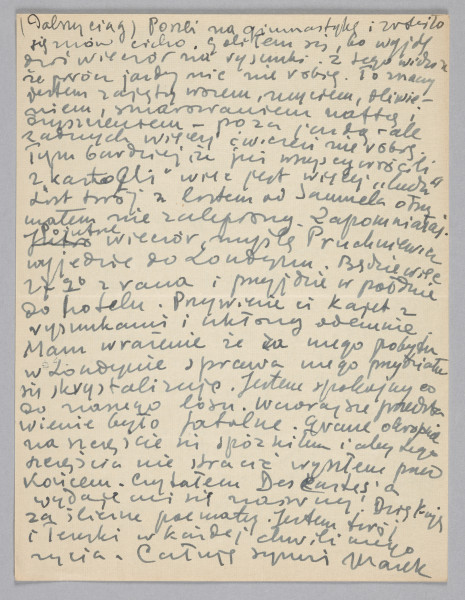 (Dalszy ciąg) Poszli na gimnastykę i zrobiło
się znów cicho. Goliłem się, bo wyjdę
dziś wieczór na rysunki. Z tego widzisz
że prócz jazdy nic nie robię. To znaczy
jestem zajęty wozem, myciem, oliwie-
niem, smarowaniem naftą i
czyszczeniem – poza jazdą – ale
żadnych więcej ćwiczeń nie robię.
Tym bardziej że już wszyscy wrócili
z kartofli więc jest więcej „ludzi"
List twój z listem od Samuela otrzy
małem nie zalepiony. Zapomniałaś.
Pojutrze wieczór, myślę Pruchniewicz
wyjedzie do Londynu. Będzie więc
z rana i przyjdzie w południe
do hotelu. Przywiezie ci kajet z
rysunkami i ukłony odemnie.
Mam wrażenie że za mego pobytu
w Londynie sprawa mego przydziału
się skrystalizuje. Jestem spokojny co
do naszego losu. Wczorajsze przedsta
wienie było fatalne. Grane okropnie
na szczęście się spóźniłem i aby tego
szczęścia nie stracić wyszłem przed
końcem. Czytałem Descartes'a
wydaje mi się naiwny. Dziękuję
za śliczne poematy. Jestem twój
i Tereski w każdej chwili mego
życia. Całuję Marek